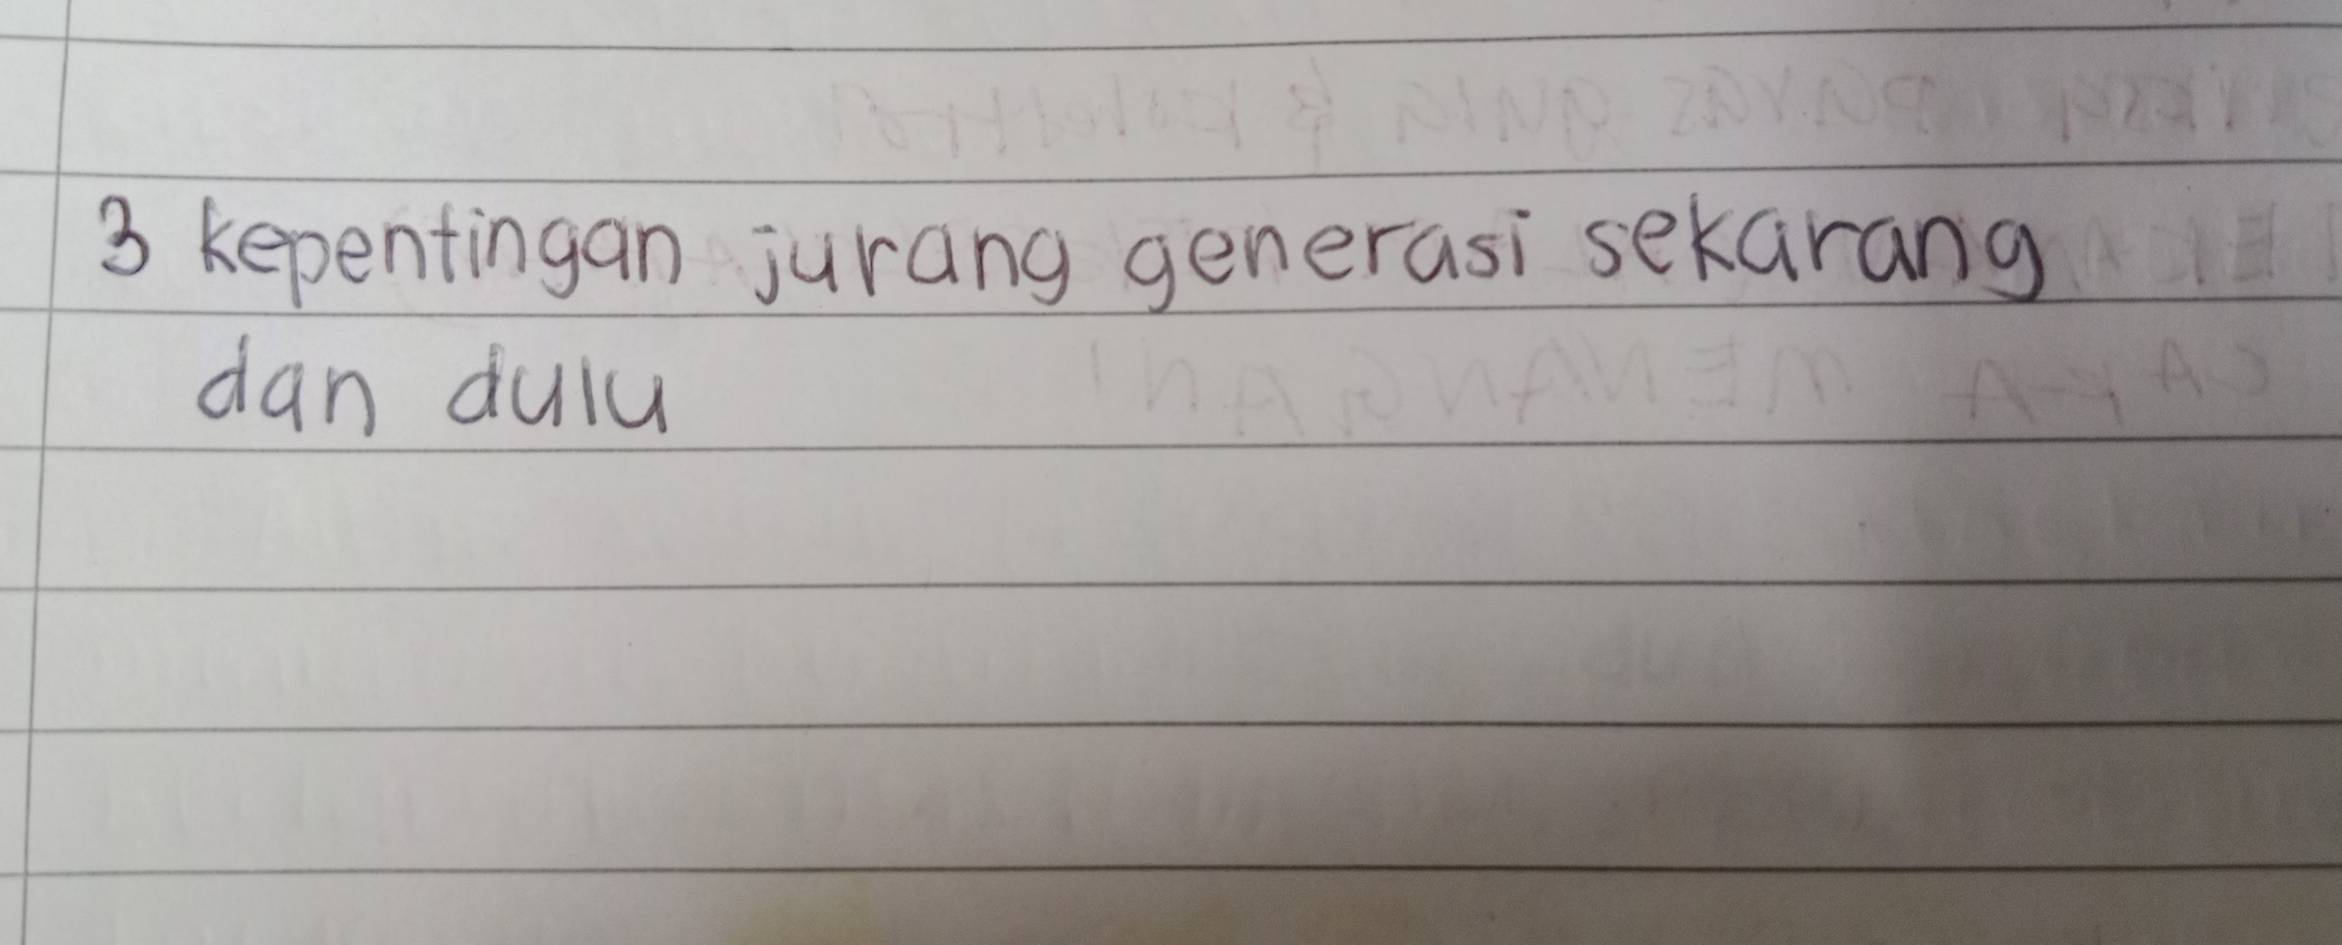 3 kepentingan jurang generasi sekarang
dan dulu